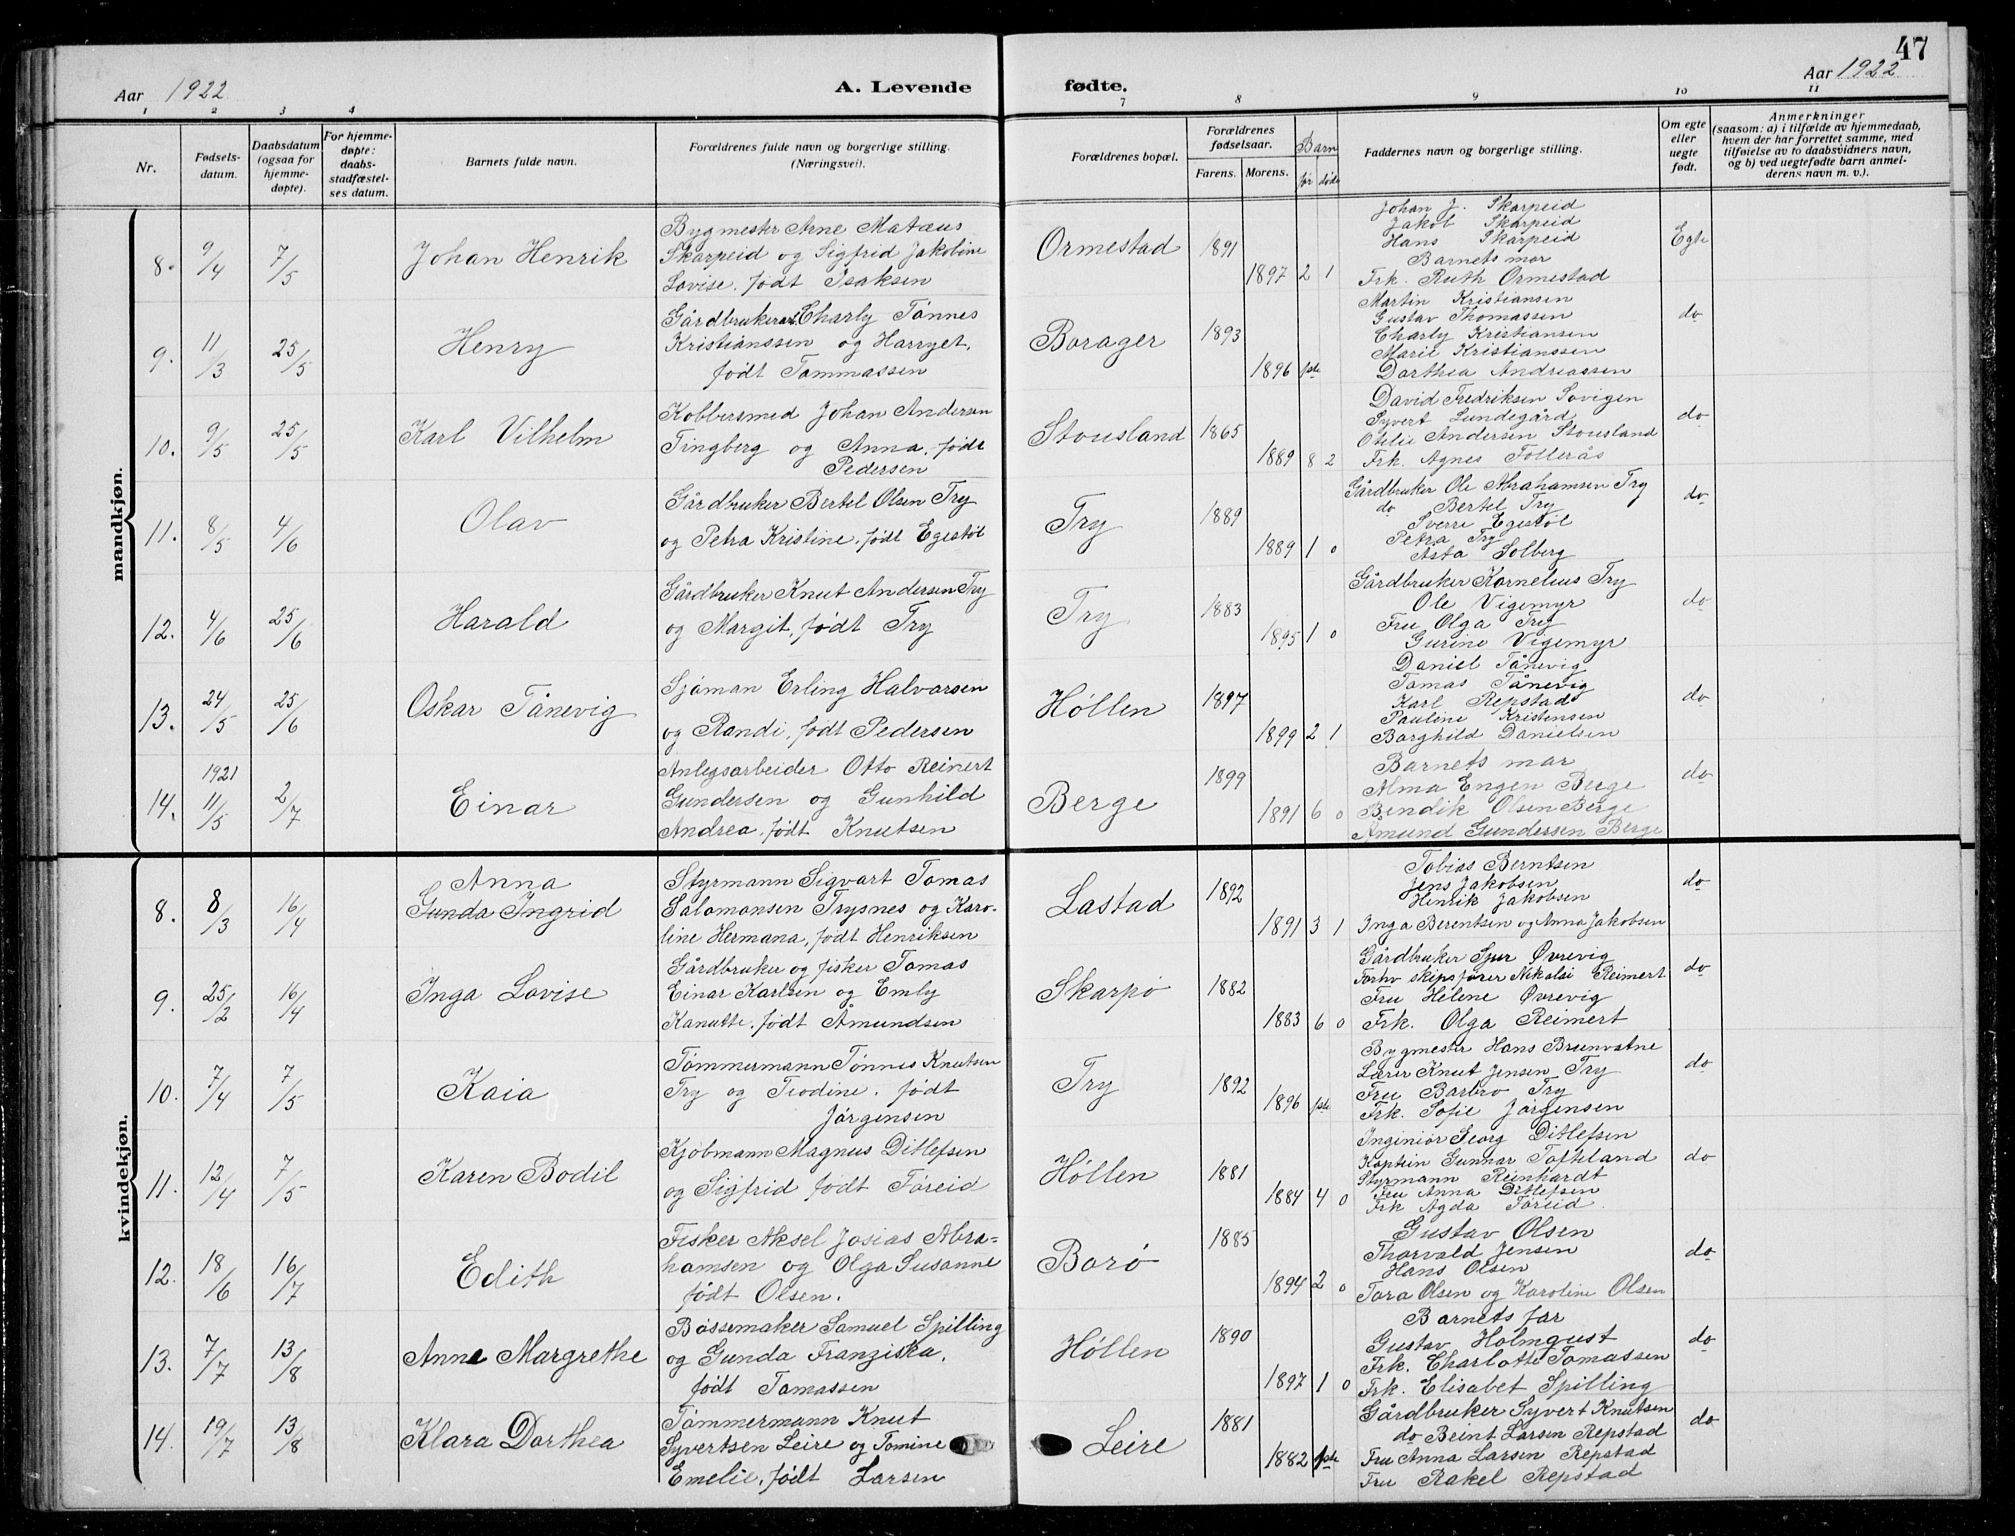 47
Aar 1922
A. Levende
fødte.
Aar 1922
1 2 3 4 7 8 9 10 11
Nr.
Fødsels-
datum.
Daabsdatum
(ogsaa for
hjemme-
døpte).
For hjemme-
døpte:
daabs-
stadfæstel-
ses datum.
Barnets fulde navn.
Forældrenes fulde navn og borgerlige stilling.
(Næringsvei).
Forældrenes bopæl.
Forældrenes
fødselsaar.
Farens. Morens.
Barn
før døde
Faddernes navn og borgerlige stilling.
Om egte
eller
uegte
født.
Anmerkninger
(saasom: a) i tilfælde av hjemmedaab,
hvem der har forrettet samme, med
tilføielse av to daabsvidners navn,
og b) ved uegtefødte barn anmel-
derens navn m. v.).
mandkjøn.
8. 9/4 7/5 Johan Henrik
Bygmester Arne Mataus
Skarpeid og Sigfrid Jakobine
Lovise, født Isaksen
Ormestad 1891 1897 2 1
Johan J. Skarpeid
Jakob Skarpeid
Hans Skarpeid
Barnets mor
Frk. Ruth Ormestad
Egte
9. 11/3 25/5 Henry
Gårdbruker Charly Tønnes
Kristianssen og Harryet,
født Tommassen
Borager 1893 1896 fste
Martin Kristiansen
Gustav Thomassen
Charly Kristiansen
Marie Kristianssen
Dorthea Andreassen
do
10. 9/5 25/5 Karl Vilhelm
Kobbersmed Johan Andersen
Tingberg og Anna, født
Pedersen
Stousland 1865 1889 8 2
David Fredriksen Sovigen
Syvert Lundegård
Otelie Andersen Stousland
Frk. Agnes Follerås
do
11. 8/5 4/6 Olav
Gårdbruker Bertel Olsen Try
og Petra Kristine, født Egestøl
Try 1889 1889 1 0
Gårdbruker Ole Abrahamsen Try
do Bertel Try
Sverre Egestøl
Petra Try
Asta Solberg
do
12. 4/6 25/6 Harald
Gårdbruker Knut Andersen Try
og Margit, født Try
Try 1883 1895 1 0
Gårdbruker Kornelius Try
Ole Vigemyr
Fru Olga Try
Gurine Vigemyr
do
13. 24/5 25/6 Oskar Tånevig
Sjøman Erling Halvorsen
og Randi, født Pedersen
Høllen 1897 1899 2 1
Daniel Tånevig
Tomas Tånevig
Karl Repstad
Pauline Kristensen
Borghild Danielsen
do
1921
14. 11/5 2/7 Einar
Anlegsarbeider Otto Reinert
Gundersen og Gunhild
Andrea, født Knutsen
Berge 1899 1891 6 0
Barnets mor
Alma Engen Berge
Bendik Olsen Berge
Åmund Gundersen Berge
do
kvindekjøn.
8. 8/3 16/4 Anna
Gunda Ingrid
Styrmann Sigvart Tomas
Salomonsen Trysnes og Karo-
line Hermana, født Henriksen
Lastad 1892 1891 3 1
Tobias Berntsen
Jens Jakobsen
Henrik Jakobsen
Inga Berentsen og Anna Jakobsen
do
9. 25/2 16/4 Inga Lovise
Gårdbruker og fisker Tomas
Einar Karlsen og Emly
Kanutte, født Åmundsen
Skarpø 1882 1883 6 0
Gårdbruker Øvrevig
Forhv skipsfører Nikolai Reimert
Fru Helene Øvrevig
Frk. Olga Reimert
do
10. 7/4 7/5 Kaia
Tømmermann Tønnes Knutsen
Try og Teodine, født
Jørgensen
Try 1892 1896 fste
Bygmester Hans Brunvatne
Lærer Knut Jensen Try
Fru Barbro Try
Frk. Sofie Jørgensen
do
11. 12/4 7/5 Karen Bodil
Kjøbmann Magnus Ditlefsen
og Sigfrid født Føreid
Høllen 1881 1884 4 0
Inginiør Georg Ditlefsen
Kaptein Gunnar Tofteland
Styrmann Reinhardt
Fru Anna Ditlefsen
Frk Agda Føreid.
do
12. 18/6 16/7 Edith
Fisker Aksel Josias Abra=
hamsen og Olga Susanne
født Olsen.
Borø 1885 1894 2 0
Gustav Olsen
Thorvald Jensen
Hans Olsen
Tora Olsen og Karoline Olsen
do
13. 7/7 13/8 Anne Margrethe
Bøssemaker Samuel Spilling
og Gunda Franziska,
født Tomassen
Høllen 1890 1897 1 0
Barnets far
Gustav Holmqust
Frk. Charlotte Tomassen
Frk. Elisabet Spilling
do
14. 19/7 13/8 Klara Dorthea
Tømmermann Knut
Syvertsen Leire og Tomine
Emelie, født Larsen
Leire 1881 1882 fste
Gårdbruker Syvert Knutsen
do Beint Larsen Repstad
Fru Anna Larsen Repstad
Fru Rakel Repstad
do